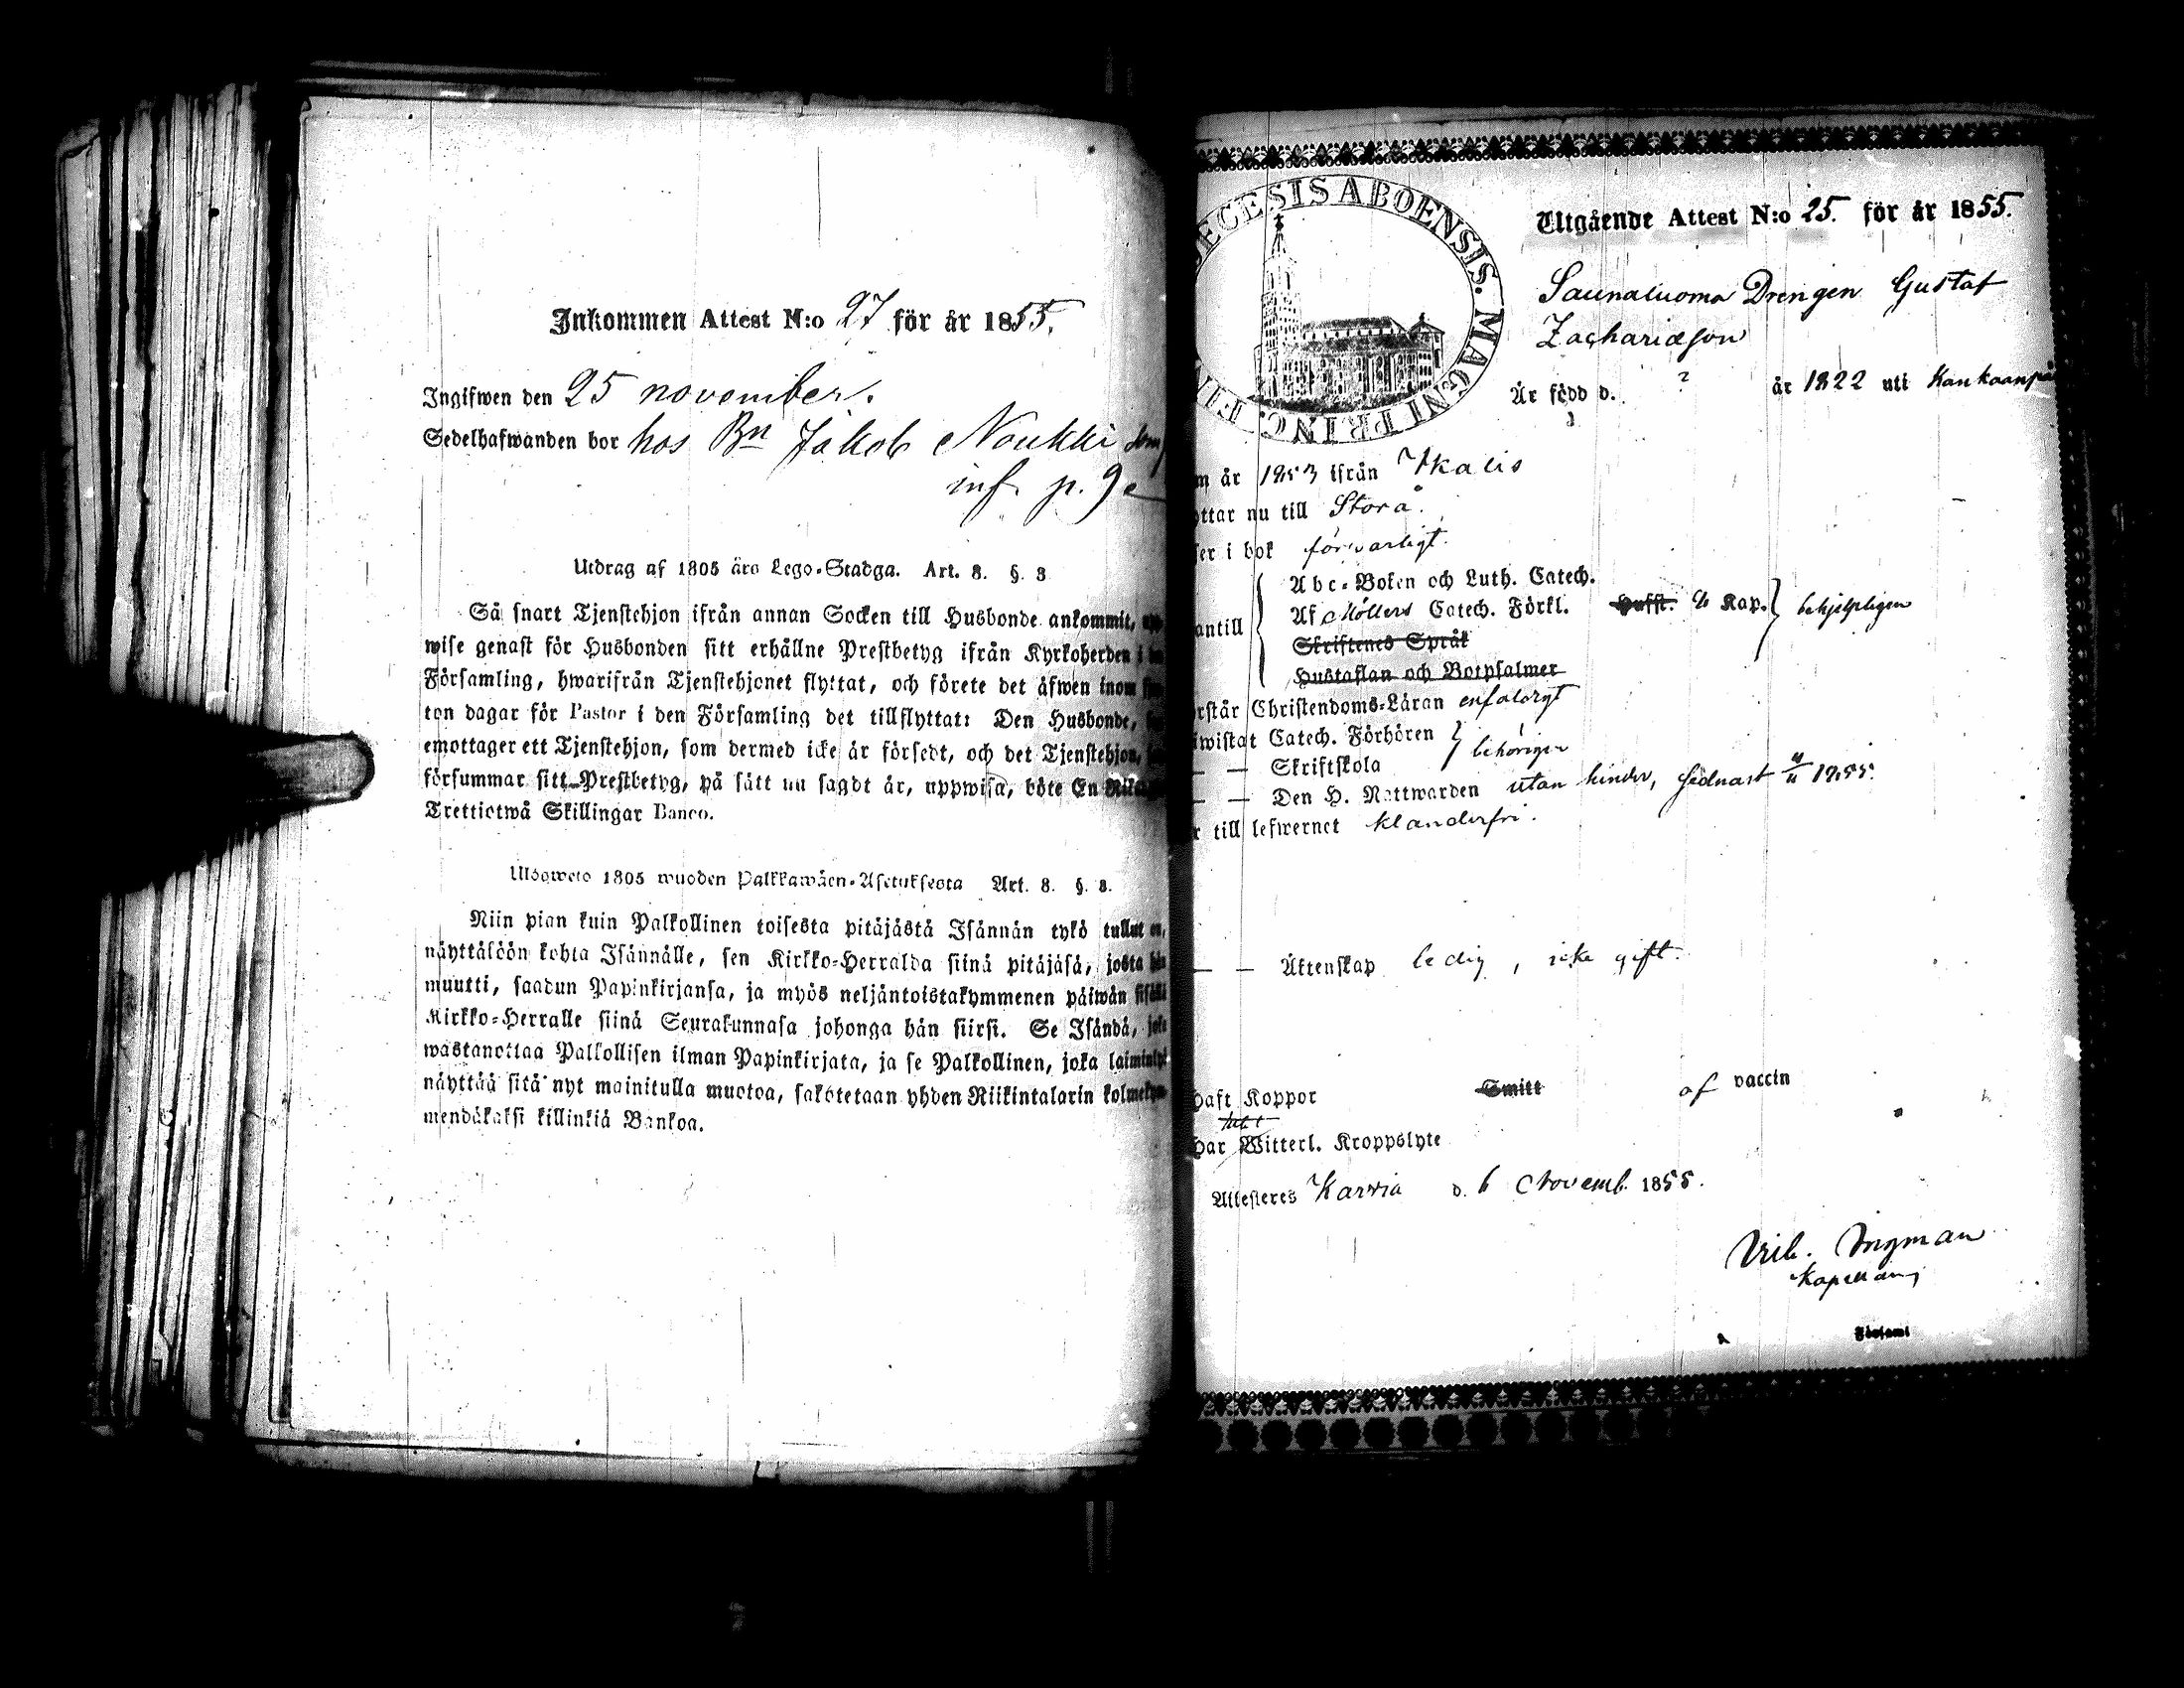 Inkommen Attest N:o 27 för år 1855.
Ingifwen den 25 november.
Sedelhafwanden bor hos Bn Jakob Noukki
inf. p. 9
Utdrag af 1805 års Lego-Stadga. Art. 8. §. 8
Så snart Tjenstehjon ifrån annan Socken till Husbonde ankommit,
wise genast för Husbonden sitt erhållne Prestbetyg ifrån Kyrkoherden i
Församling, hwarifrån Tjenstehjonet flyttat, och förete det äfwen inom
ton dagar för Pastor i den Församling det tillflyttat: Den Husbonde,
emottager ett Tjenstehjon, som dermed icke är försedt, och det Tjenstehjon,
försummar sitt Prestbetyg, på sätt nu sagdt är, uppwisa, böte En
Trettiotwå Skillingar Banco.
Ulosweto 1805 wuoden Palkkawäen-Asetuksesta Art. 8. §. 8.
Niin pian kuin Palkollinen toisesta pitäjästä Isännän tykö tullut on,
näyttäköön kohta Isännälle, sen Kirkko-Herralda siinä pitäjäsä, josta hän
muutti, saadun Papinkirjansa, ja myös neljäntoistakymmenen päiwän sisällä
Kirkko-Herralle siinä Seurakunnasa johonga hän siirsi. Se Isändä, joka
wastanottaa Palkollisen ilman Papinkirjata, ja se Palkollinen, joka
näyttää sitä nyt mainitulla muotoa, sakotetaan yhden Riikintalarin
mendäkaksi killinkiä Bankoa.
ECESIS ABOENSIS. MAGNI PRINC. FIN
Utgående Attest N:o 25. för år 1855.
Saunaluoma Drengen Gustaf
Zachariasson
Är född d. ? år 1822 uti Kankaanpää
m år 1853 ifrån Ikalis
ottar nu till Storå.
ser i bok försvarligt.
antill
Abc-Boken och Luth. Catech.
Af Möllers Catech. Förkl. Hufst. Kap. behjelpligen
Skriftenes Språk
Hustaflan och Botpsalmer
rstår Christendoms-Läran enfaldigt
wistat Catech. Förhören
— — Skriftskola behörigen
— — Den H. Nattwarden utan hinder, sednast 4/11 1855.
r till lefwernet klanderfri.
— — Äktenskap ledig, icke gift.
haft Koppor Smitt af vaccin
har Witterl. Kroppslyte
Attesteres Karvia d. 6 Novemb. 1855.
Vilh. Ingman
Kapellan
Församl